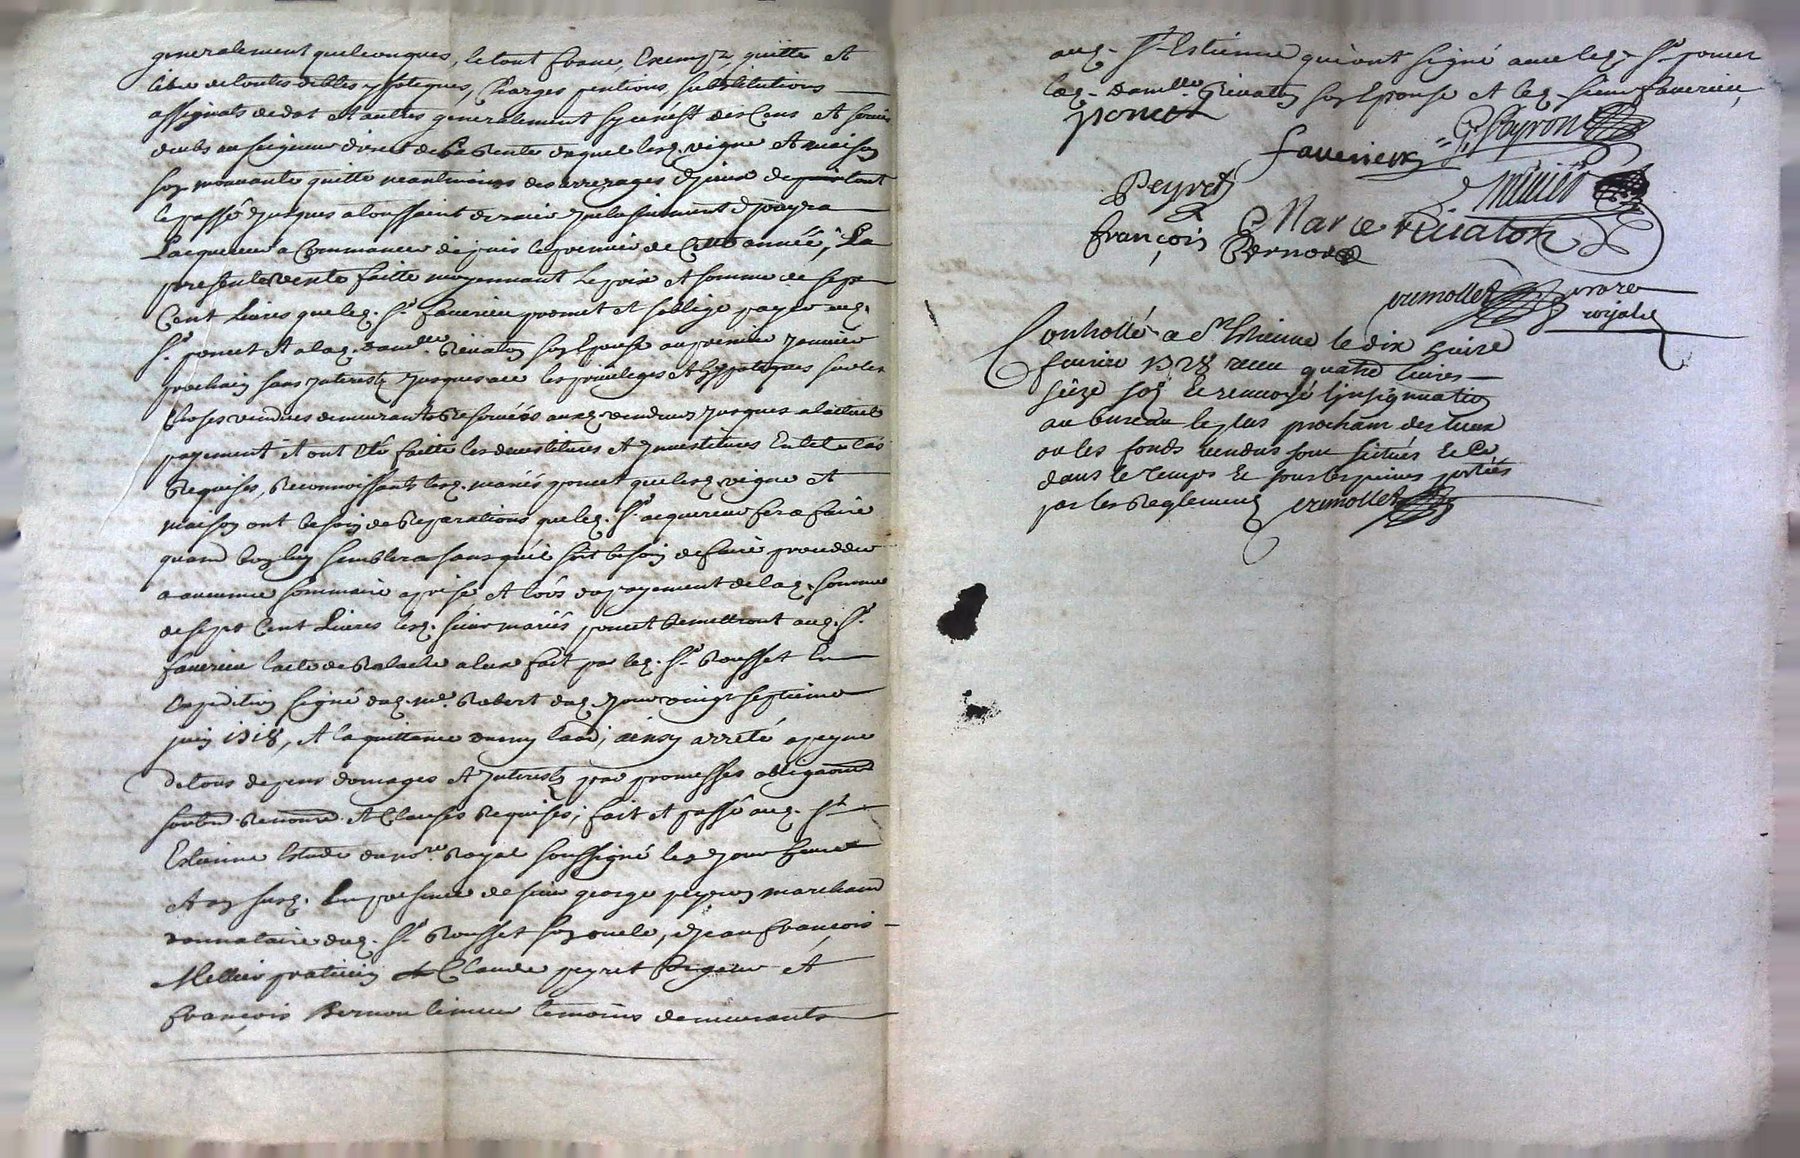 generalement quelconques, le tout franc, Exempt, quitte et
libre de toutes debtes ypoteques, Charges pentions, substitutions
assignats de dot et autres generalement sy ce n'est des Cens et
deubs au seigneur direct de sa Rente duquel lesd. vigne et maison
son mouvants quitte neantmoins des arrerages d'yceux de tout
le passé jusques a toussaint dernier que la jnement
L'acquereur a Commancer depuis le premier de Cette année; La
presente vente faitte moyennant le prix et somme de sept
Cent Livres que led. Sr. faverieu promet et s'oblige payer aud.
Sr. poncet et a lad. damlle. Rivaton son Epouse au premier janvier
prochain sans interests jusques avec les privileges et hyppoteques sur les
Choses vendues demeurants Reservées auxd. vendeurs jusques a l'actuel
payement et ont été faitte les devestitures et jnvestitures En tel cas
Requises, Reconnoissants lesd. mariés poncet que lesd. vigne et
maison ont besoin de Reparations que led. Sr. acquereur fera faire
quand bon luy semblera sans qu'il soit besoin de faire proceder
a aucune sommaire aprise et lors du payement de lad. somme
de sept Cent Livres lesd. sieur mariés poncet Remettront aud. Sr.
faverieu l'acte de Relache a eux fait par led. Sr. Rousset En
Expedition signé dud. me. Robert dud. jour vingt septieme
juin 1718, et la quittance du my laod; ainsy arreté a peyne
de tous depens domages et jnterests par promesses obligaons
soubm. Renonc. et Clauses Requises; fait et passé aud. St
Estienne Estude du nore. Royal soussigné les jour
et an susd. En presence de sieur george peyron marchand
donnataire dud. Sr. Rousset son oncle, de jean françois
Mellier praticien et Claude peyret et
françois Bernou temoins demeurants
aud. St Estienne qui ont signé avec led. Sr. poncet
lad. damlle. Rivaton son Epouse et led. sieur faverieu,
poncet
G. Peyron
faverieu
Peyret
Mellier
Marie Rivaton
françois Bernou
cremollet nore
royal
Controllé a St Estienne le dix huire
fevrier 1728 receu quatre livres
seize sols et renvoyé l'insignuation
au bureau le plus prochain des lieux
ou les fonds vendus sont situés et Ce
dans le temps et sous les peines portées
par les Reglements cremollet